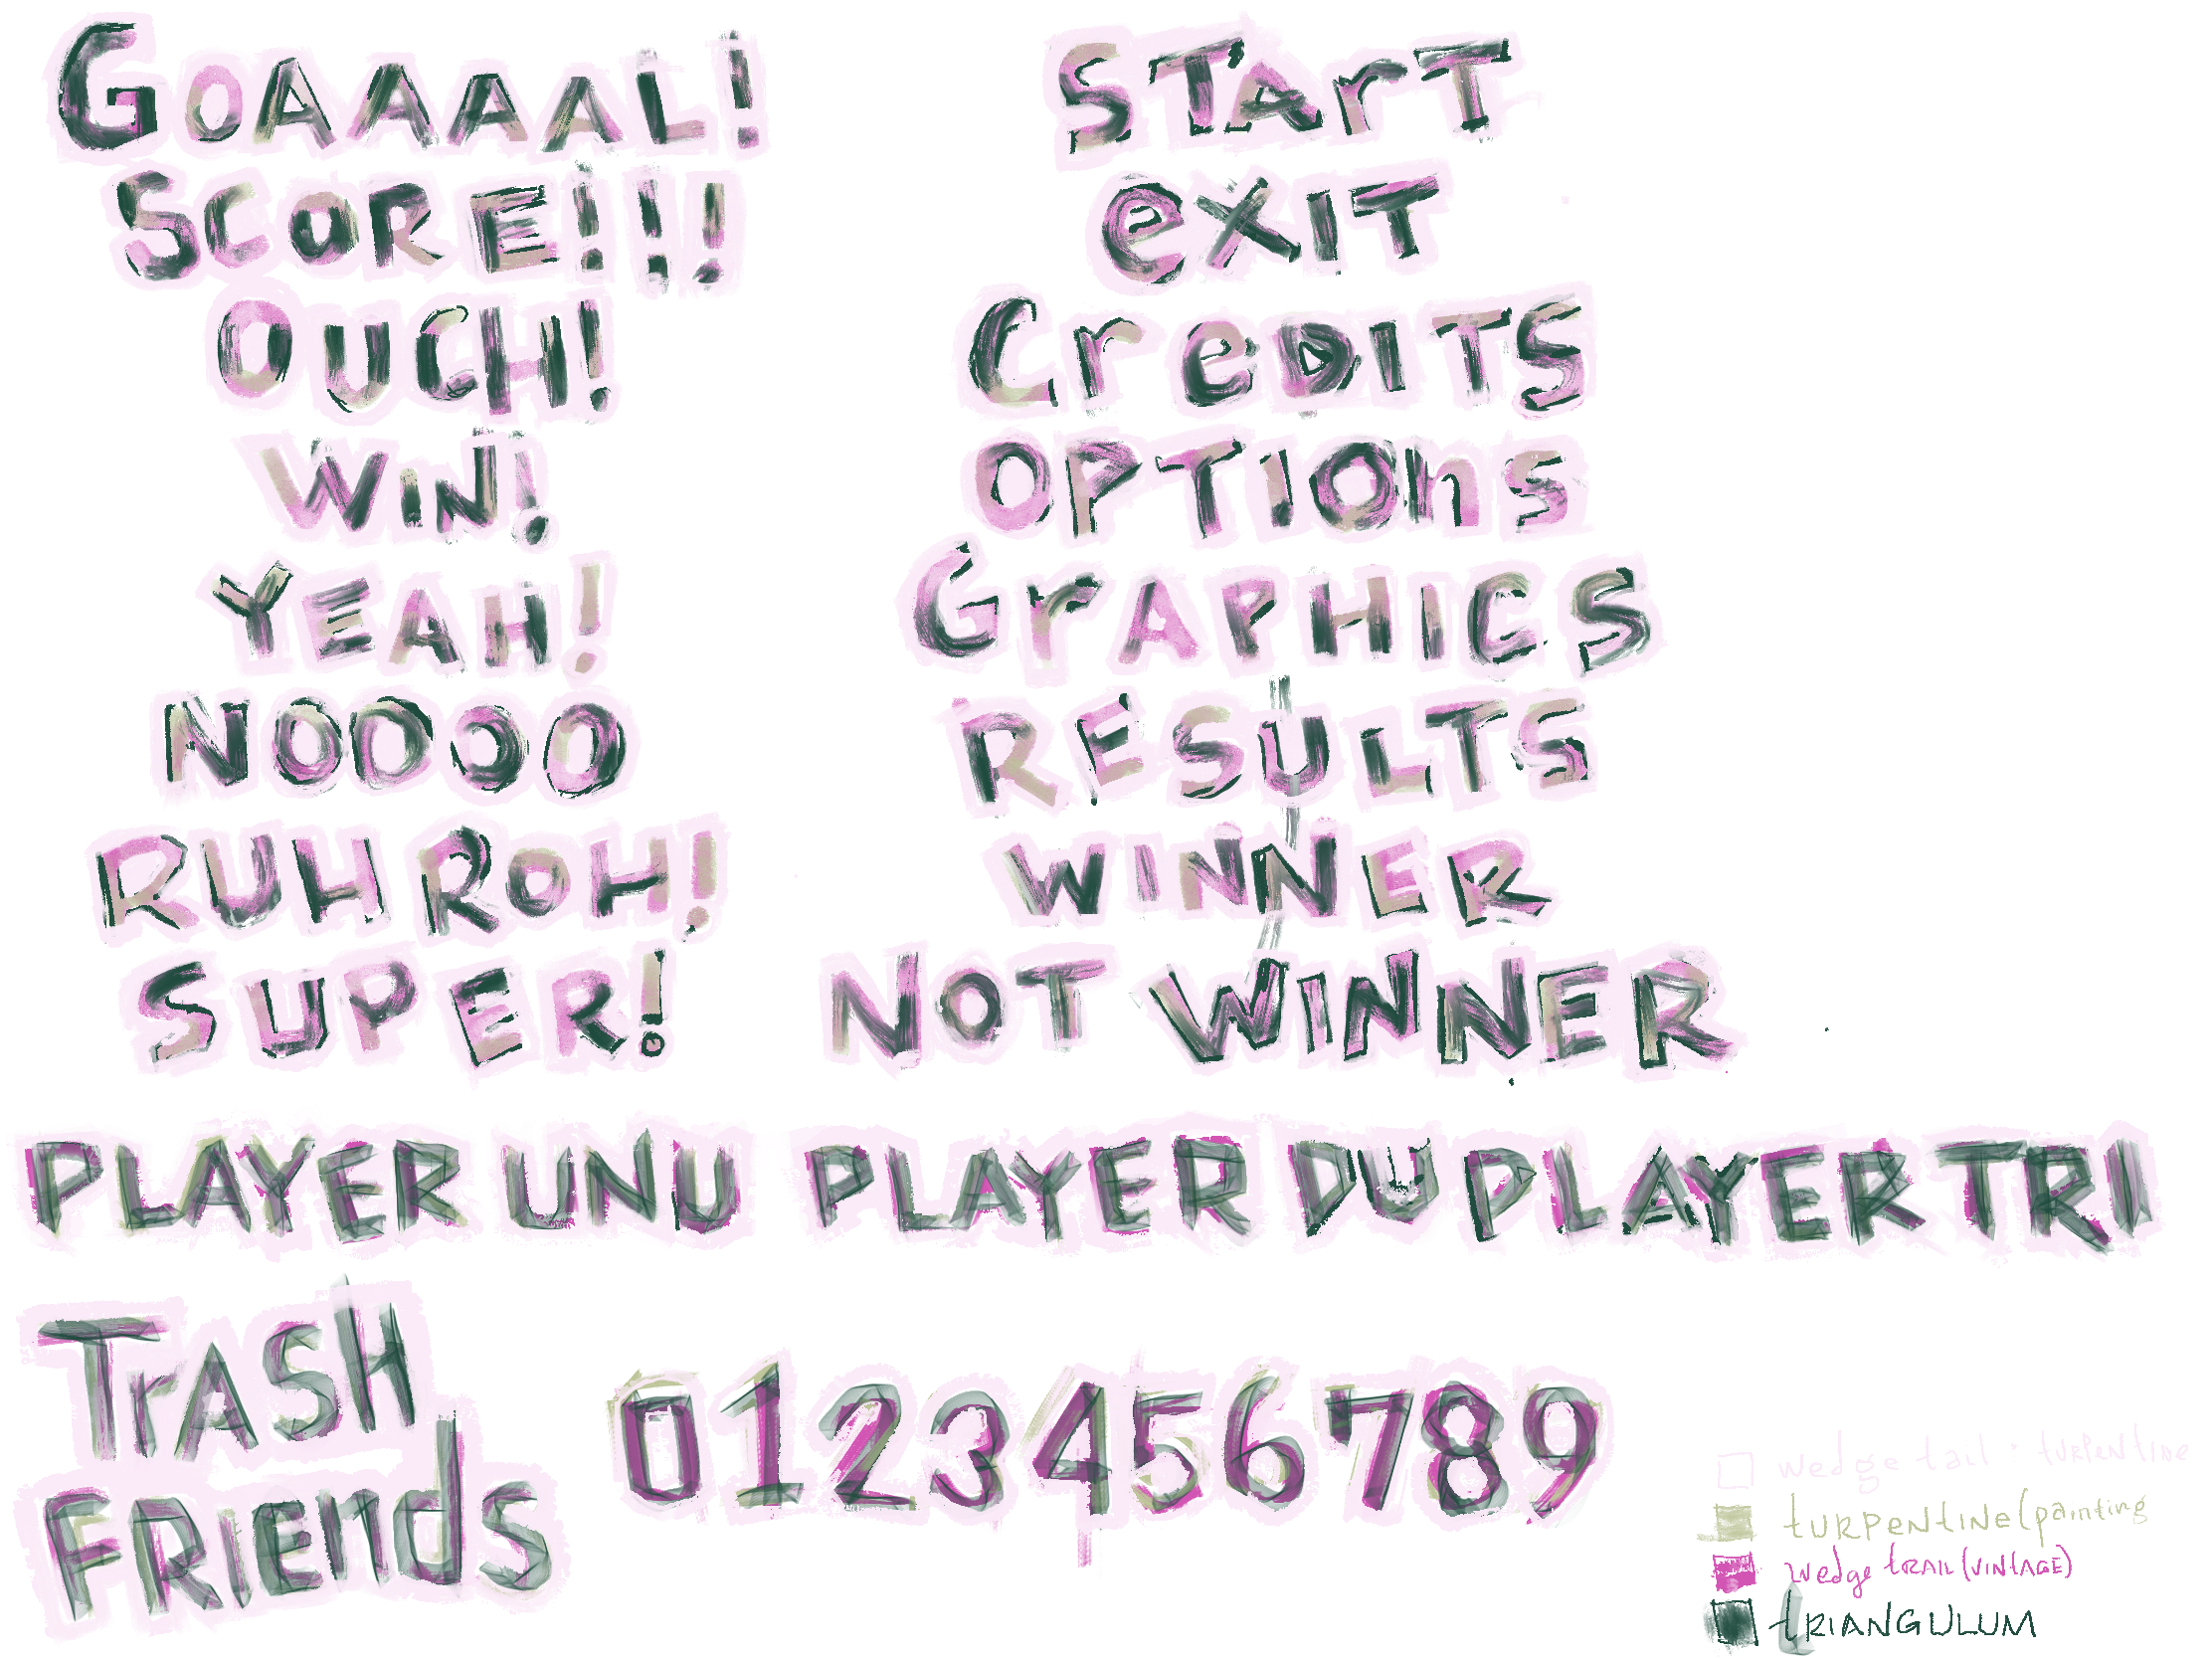 GOAAAAL!
SCORE!!!
OUCH!
WIN!
YEAH!
NOOOO
RUH ROH!
SUPER!
STArT
eXIT
CreDITS
OPTIOnS
GrAPHICS
RESULTS
WINNER
NOT WINNER
PLAYER UNU PLAYER DU PLAYER TRI
TrASH
FRIEndS
0123456789
wedge tail · tURPENTINE
tURPENtINE (painting
wedge tRAIL (VINtAGE)
tRIANGULUM